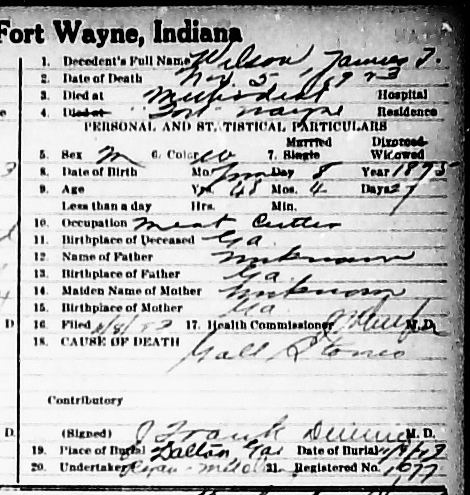 Fort Wayne, Indiana
1. Decedent's Full Name Wilson, James T.
2. Date of Death Nov. 5, 1923
3. Died at Methodist Hospital
4. Died at Fort Wayne Residence
PERSONAL AND STATISTICAL PARTICULARS
Married Divorced
5. Sex M 6. Color W 7. Single Widowed
8. Date of Birth Mo. Day 8 Year 1875
9. Age Yrs. 48 Mos. 4 Days 27
Less than a day Hrs. Min.
10. Occupation Meat Cutter
11. Birthplace of Deceased Ga.
12. Name of Father Unknown
13. Birthplace of Father Ga.
14. Maiden Name of Mother Unknown
15. Birthplace of Mother Ga
D 16. Filed 17. Health Commissioner M.D.
18. CAUSE OF DEATH
Gall Stones
Contributory
D. (Signed) J Frank M. D.
19. Place of Burial Dalton, Ga. Date of Burial
20. Undertaker 21. Registered No. 1677